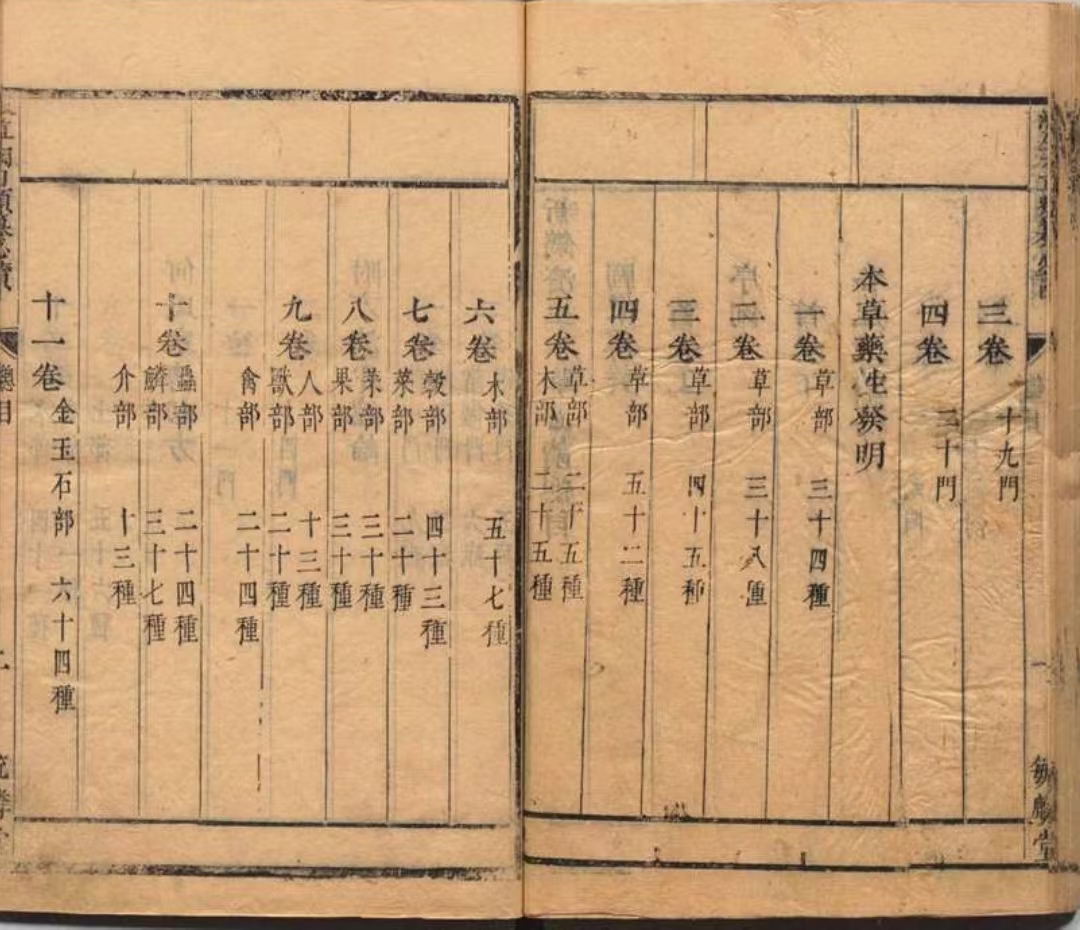 三卷 十九門
四卷 三十門
本草藥性發明
一卷 草部 三十四種
二卷 草部 三十八種
三卷 草部 四十五種
四卷 草部 五十二種
五卷 草部 二十五種
木部 二十五種
六卷 木部 五十七種
七卷 穀部 四十三種
菜部 二十種
八卷 菜部 三十種
果部 三十種
九卷 人部 十三種
獸部 二十種
禽部 二十四種
十卷 蟲部 二十四種
鱗部 三十七種
介部 十三種
十一卷 金玉石部 六十四種
總目
二